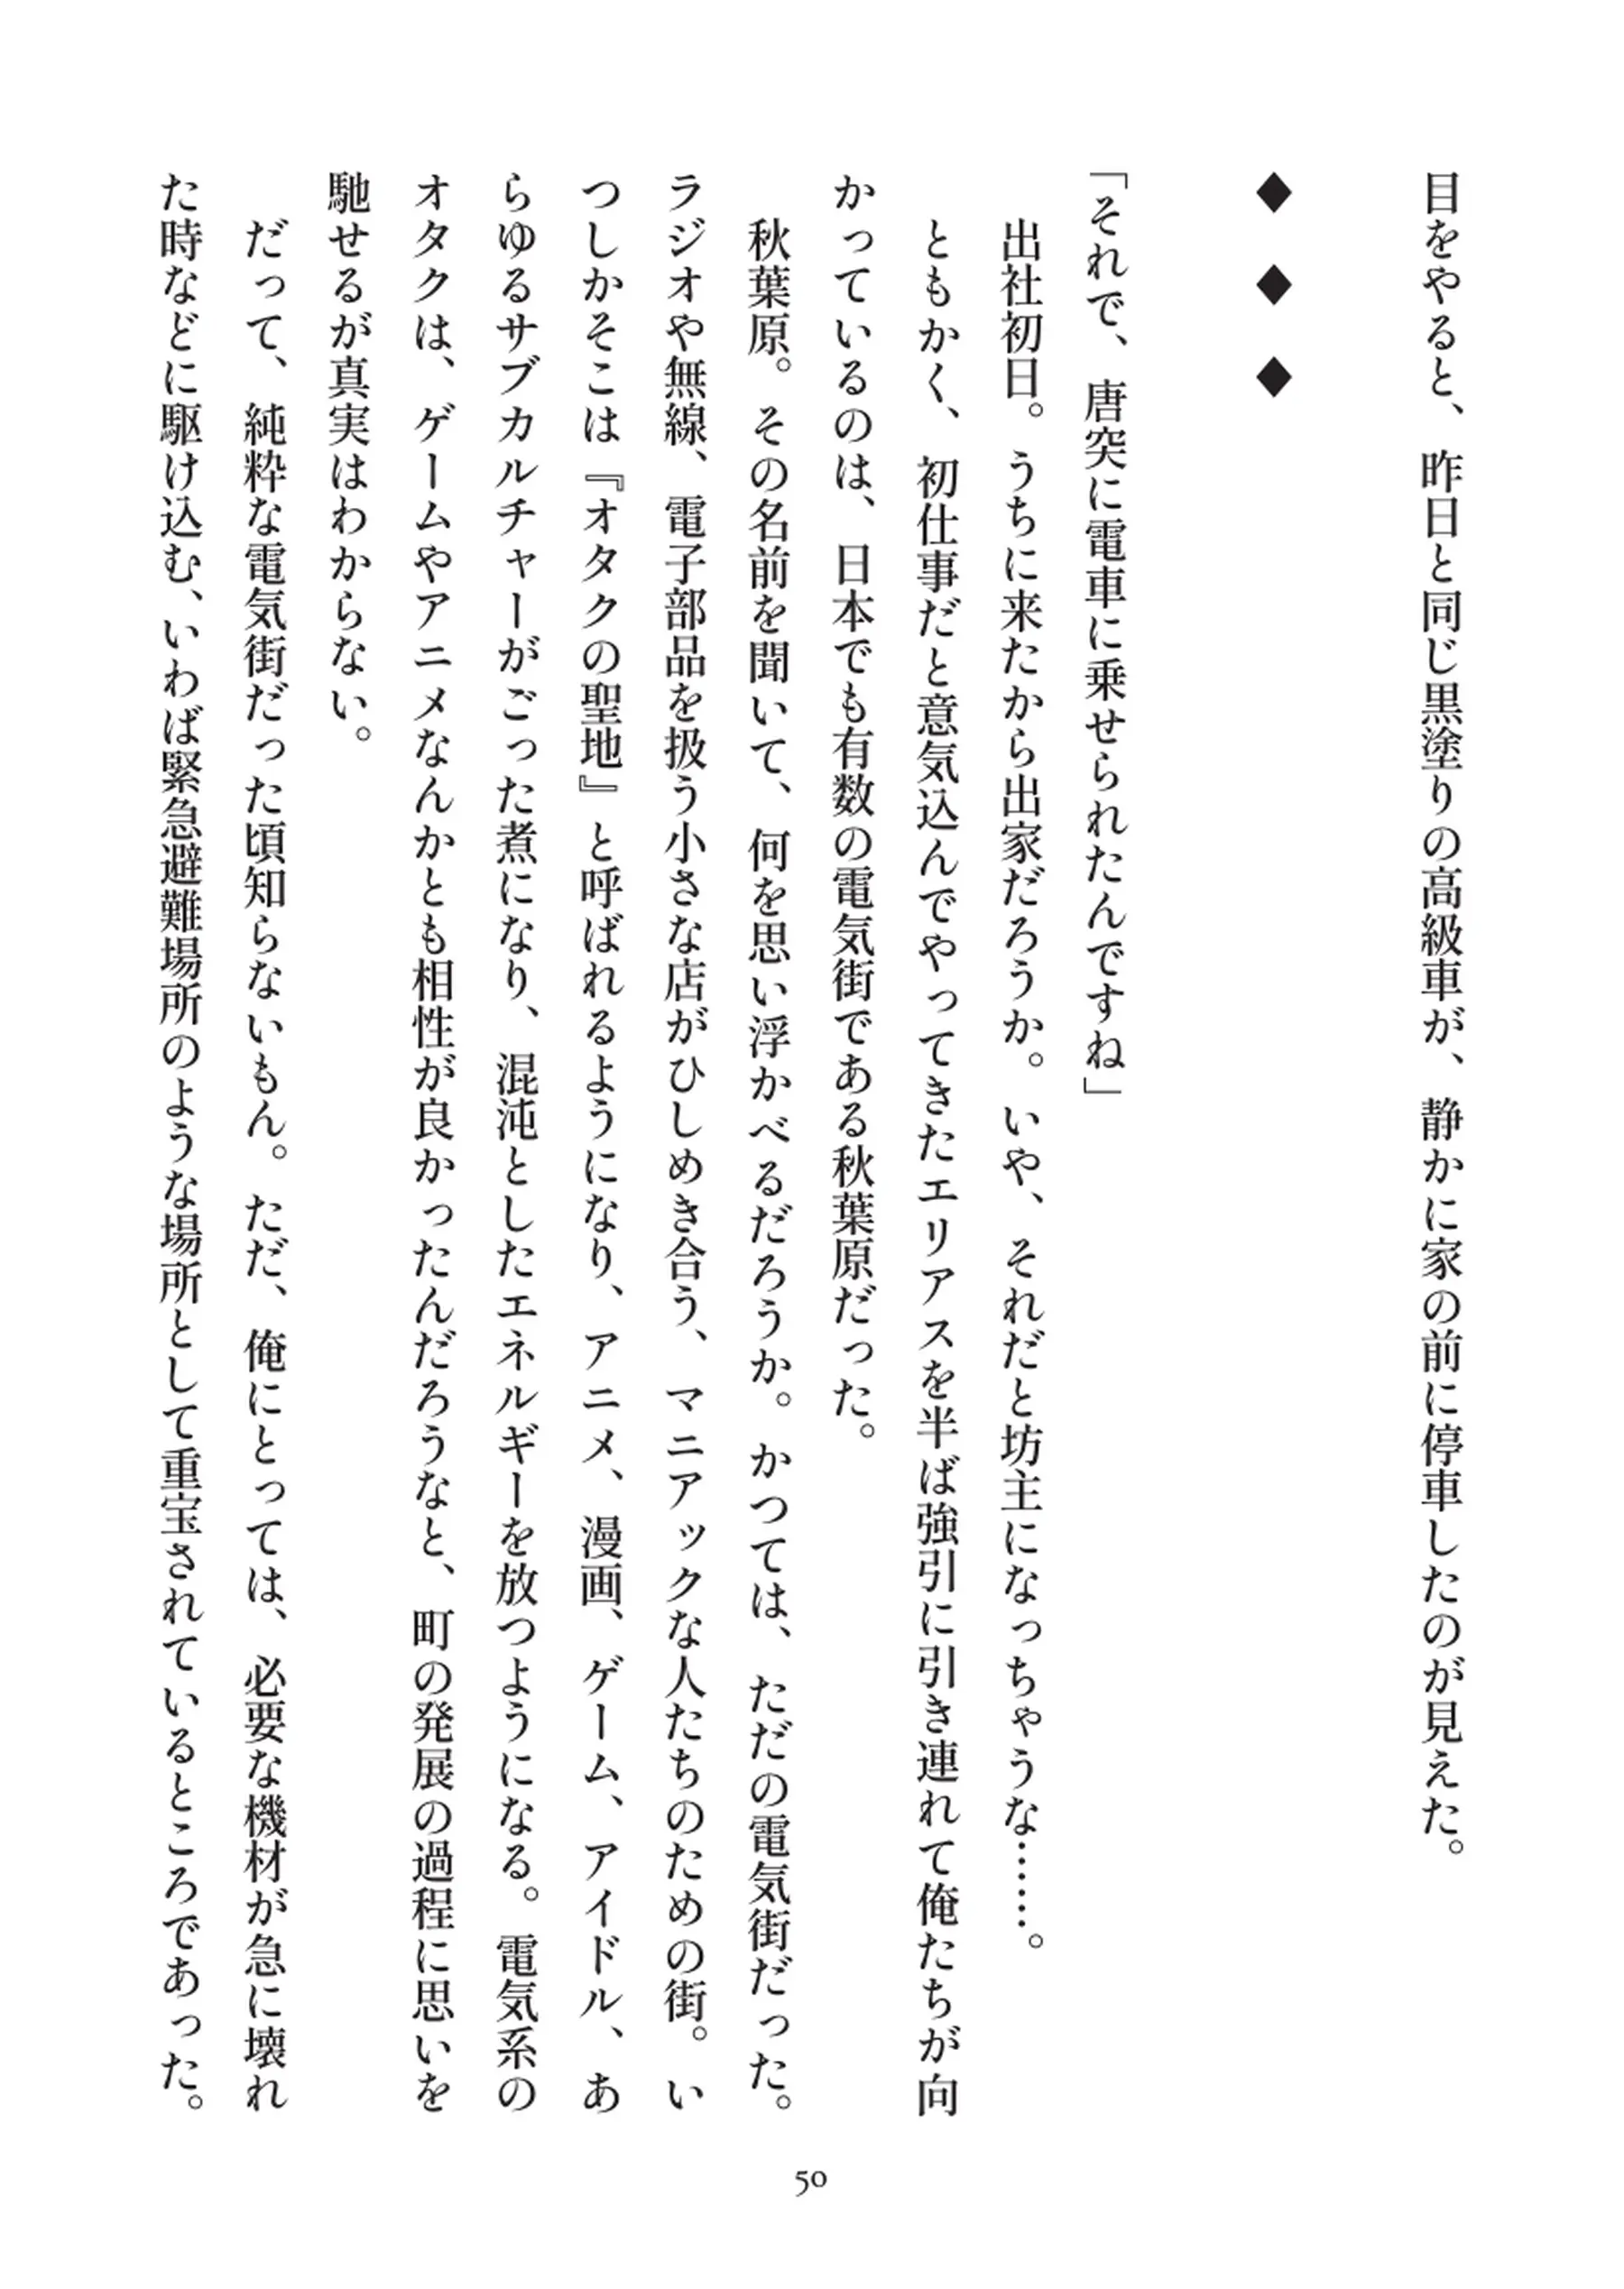 目をやると、昨日と同じ黒塗りの高級車が、静かに家の前に停車したのが見えた。
◆　◆　◆
「それで、唐突に電車に乗せられたんですね」
　出社初日。うちに来たから出家だろうか。いや、それだと坊主になっちゃうな……。
　ともかく、初仕事だと意気込んでやってきたエリアスを半ば強引に引き連れて俺たちが向
かっているのは、日本でも有数の電気街である秋葉原だった。
　秋葉原。その名前を聞いて、何を思い浮かべるだろうか。かつては、ただの電気街だった。
ラジオや無線、電子部品を扱う小さな店がひしめき合う、マニアックな人たちのための街。い
つしかそこは『オタクの聖地』と呼ばれるようになり、アニメ、漫画、ゲーム、アイドル、あ
らゆるサブカルチャーがごった煮になり、混沌としたエネルギーを放つようになる。電気系の
オタクは、ゲームやアニメなんかとも相性が良かったんだろうなと、町の発展の過程に思いを
馳せるが真実はわからない。
　だって、純粋な電気街だった頃知らないもん。ただ、俺にとっては、必要な機材が急に壊れ
た時などに駆け込む、いわば緊急避難場所のような場所として重宝されているところであった。
50